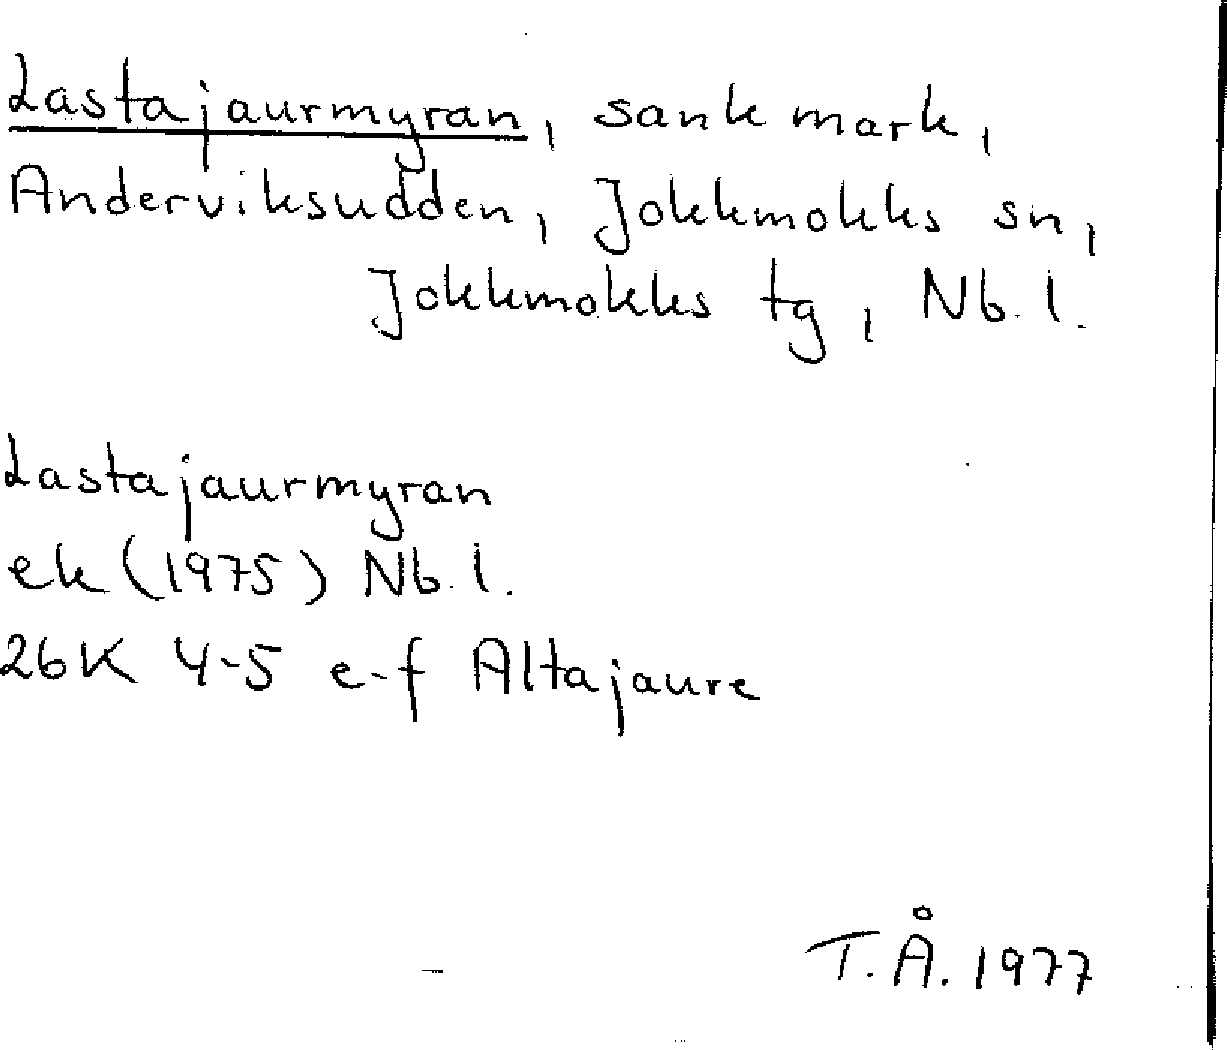 Lastajaurmyran, sankmark,
Anderviksudden, Jokkmokks sn,
Jokkmokks tg, Nb. l.
Lastajaurmyran
ek (1975) Nb. l.
26K 4-5 e-f Altajaure
T.Å. 1977